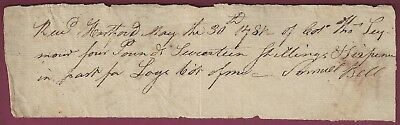 Recd Hartford May the 30th 1781 of Colo Tho Sey
mour four Pounds Seventeen Shillings & Sixpence
in part for Logs bot of me — Samuel Bell